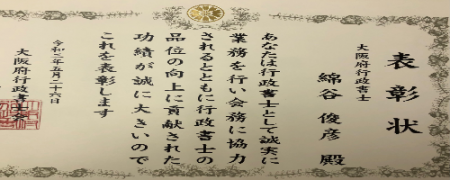 表彰状
大阪府行政書士
綿谷俊彦 殿
あなたは行政書士として誠実に
業務を行い会務に協力
されるとともに行政書士の
品位の向上に貢献された
功績が誠に大きいので
これを表彰します
令和三年五月二十六日
大阪府行政書士